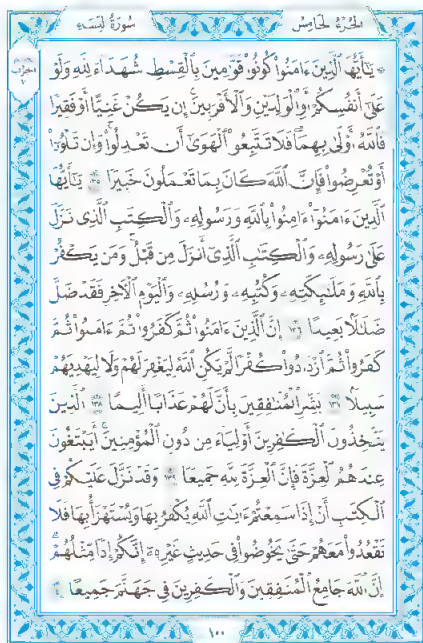 الجزء الخامس
سورة النساء
الحزب
۞ يَٰٓأَيُّهَا ٱلَّذِينَ ءَامَنُوا۟ كُونُوا۟ قَوَّٰمِينَ بِٱلْقِسْطِ شُهَدَآءَ لِلَّهِ وَلَوْ
عَلَىٰٓ أَنفُسِكُمْ أَوِ ٱلْوَٰلِدَيْنِ وَٱلْأَقْرَبِينَ إِن يَكُنْ غَنِيًّا أَوْ فَقِيرًا
فَٱللَّهُ أَوْلَىٰ بِهِمَا فَلَا تَتَّبِعُوا۟ ٱلْهَوَىٰٓ أَن تَعْدِلُوا۟ وَإِن تَلْوُۥٓا۟
أَوْ تُعْرِضُوا۟ فَإِنَّ ٱللَّهَ كَانَ بِمَا تَعْمَلُونَ خَبِيرًا ١٣٥ يَٰٓأَيُّهَا
ٱلَّذِينَ ءَامَنُوٓا۟ ءَامِنُوا۟ بِٱللَّهِ وَرَسُولِهِۦ وَٱلْكِتَٰبِ ٱلَّذِى نَزَّلَ
عَلَىٰ رَسُولِهِۦ وَٱلْكِتَٰبِ ٱلَّذِىٓ أَنزَلَ مِن قَبْلُ وَمَن يَكْفُرْ
بِٱللَّهِ وَمَلَٰٓئِكَتِهِۦ وَكُتُبِهِۦ وَرُسُلِهِۦ وَٱلْيَوْمِ ٱلْءَاخِرِ فَقَدْ ضَلَّ
ضَلَٰلًۢا بَعِيدًا ١٣٦ إِنَّ ٱلَّذِينَ ءَامَنُوا۟ ثُمَّ كَفَرُوا۟ ثُمَّ ءَامَنُوا۟ ثُمَّ
كَفَرُوا۟ ثُمَّ ٱزْدَادُوا۟ كُفْرًا لَّمْ يَكُنِ ٱللَّهُ لِيَغْفِرَ لَهُمْ وَلَا لِيَهْدِيَهُمْ
سَبِيلًۢا ١٣٧ بَشِّرِ ٱلْمُنَٰفِقِينَ بِأَنَّ لَهُمْ عَذَابًا أَلِيمًا ١٣٨ ٱلَّذِينَ
يَتَّخِذُونَ ٱلْكَٰفِرِينَ أَوْلِيَآءَ مِن دُونِ ٱلْمُؤْمِنِينَ أَيَبْتَغُونَ
عِندَهُمُ ٱلْعِزَّةَ فَإِنَّ ٱلْعِزَّةَ لِلَّهِ جَمِيعًا ١٣٩ وَقَدْ نَزَّلَ عَلَيْكُمْ فِى
ٱلْكِتَٰبِ أَنْ إِذَا سَمِعْتُمْ ءَايَٰتِ ٱللَّهِ يُكْفَرُ بِهَا وَيُسْتَهْزَأُ بِهَا فَلَا
تَقْعُدُوا۟ مَعَهُمْ حَتَّىٰ يَخُوضُوا۟ فِى حَدِيثٍ غَيْرِهِۦٓ إِنَّكُمْ إِذًا مِّثْلُهُمْ
إِنَّ ٱللَّهَ جَامِعُ ٱلْمُنَٰفِقِينَ وَٱلْكَٰفِرِينَ فِى جَهَنَّمَ جَمِيعًا ١٤٠
١٠٠